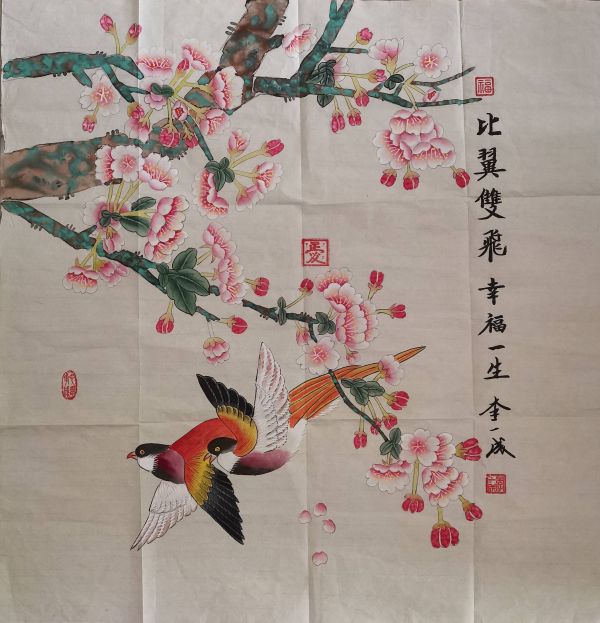 福
比翼雙飛 幸福一生 李一成